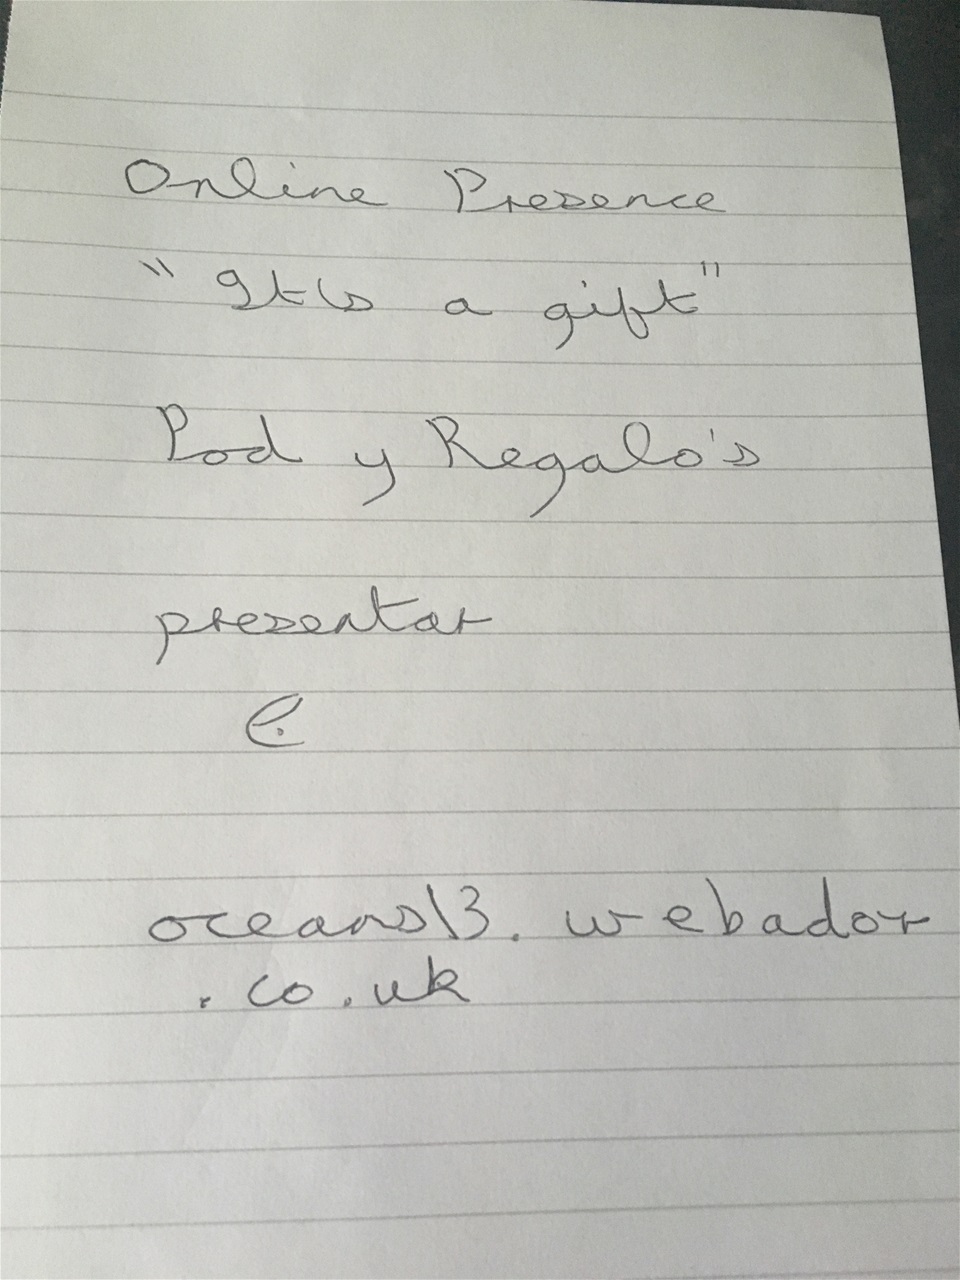 Online Presence
"Itis a gift"
Pod y Regalo's
presentar
e.
oceans13.webador
.co.uk